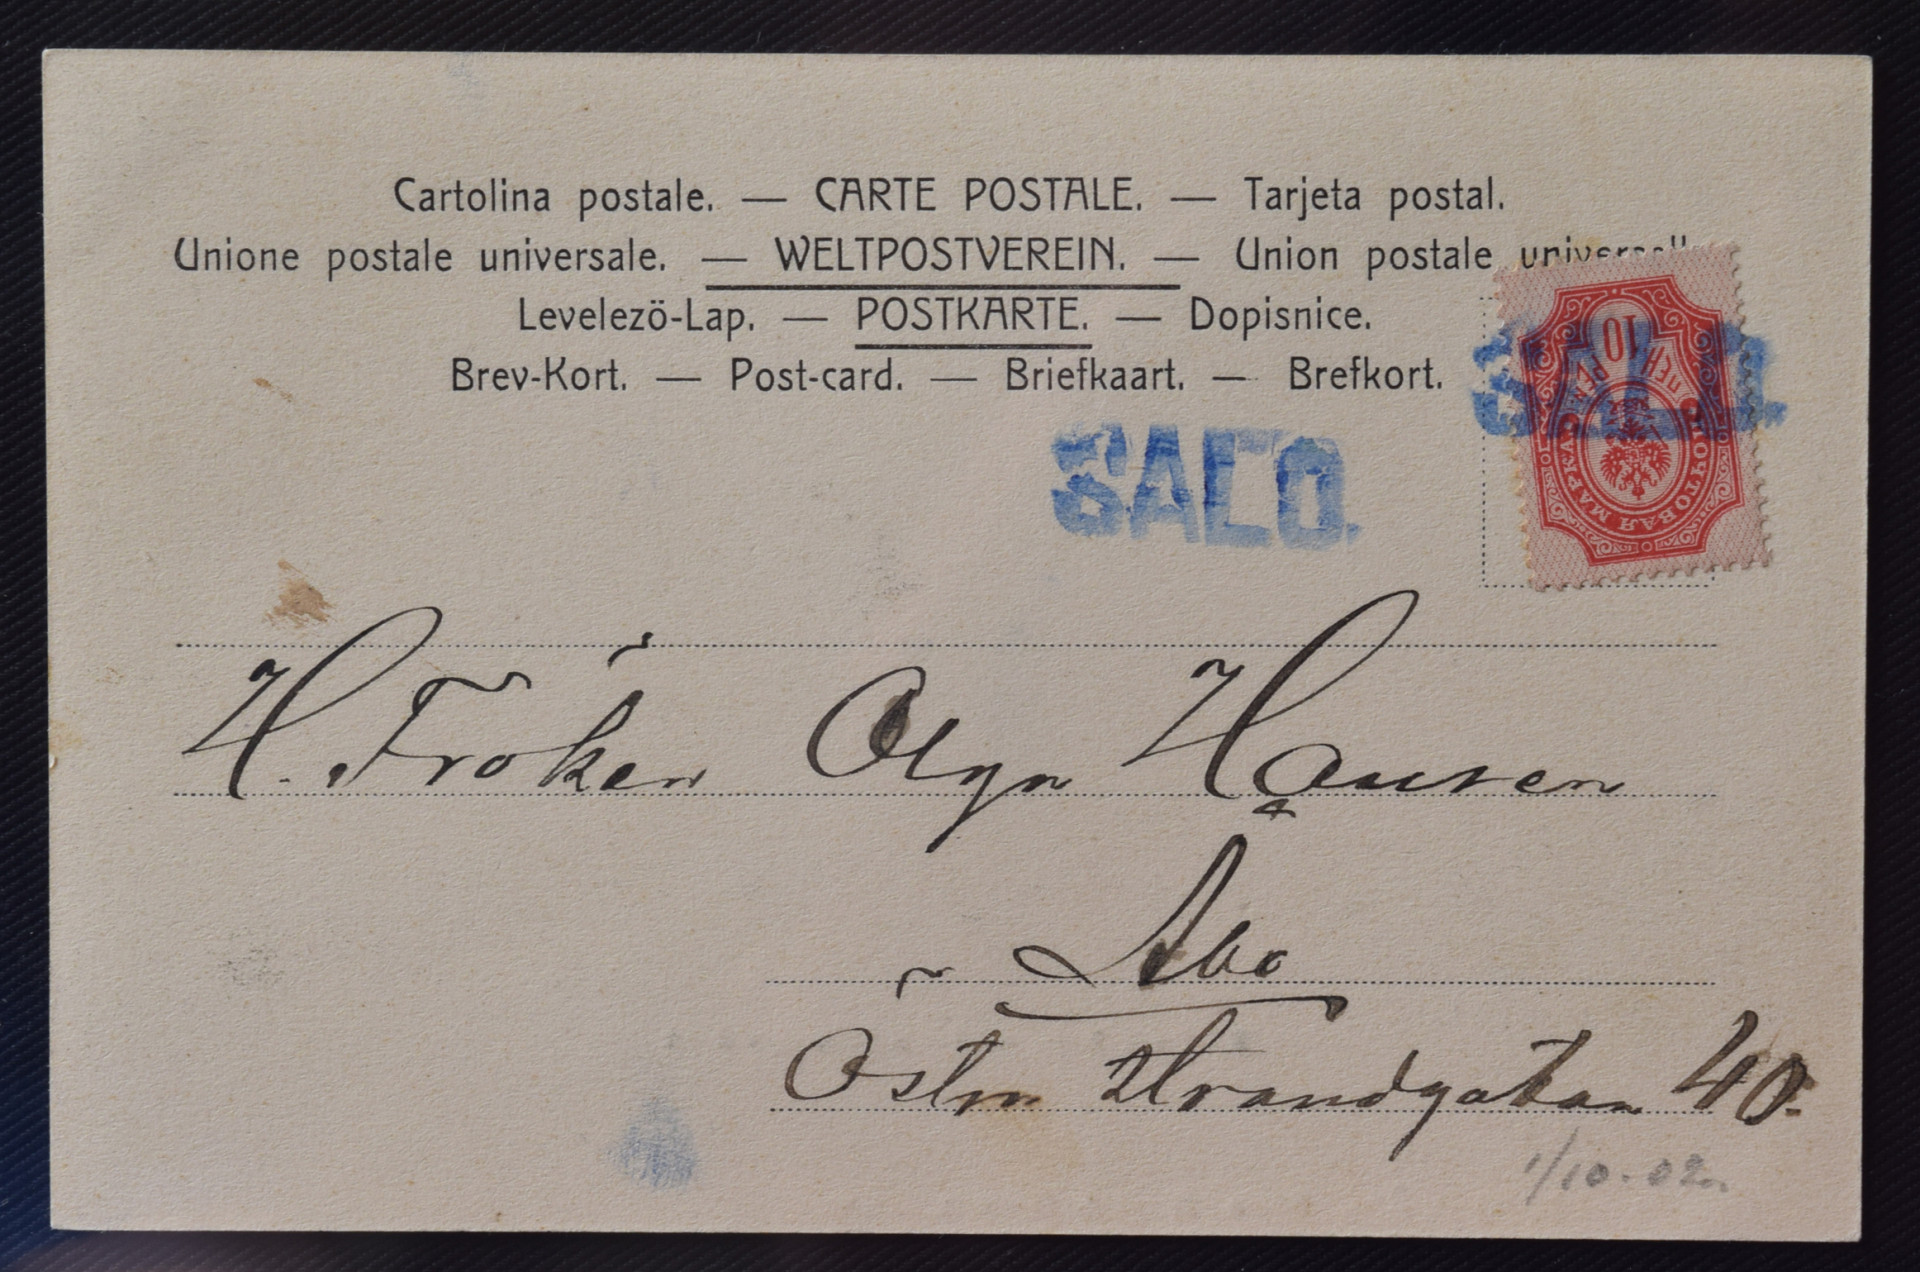 Cartolina postale. — CARTE POSTALE. — Tarjeta postal.
Unione postale universale. — WELTPOSTVEREIN. — Union postale universelle
Levelezö-Lap. — POSTKARTE. — Dopisnice.
Brev-Kort. — Post-card. — Briefkaart. — Brefkort.
10
ПЕН. PEN.
ПОЧТОВАЯ МАРКА
SALO.
SALO.
H. Fröken Olga Hansen
Åbo
Östra Strandgatan 40.
1/10.02.